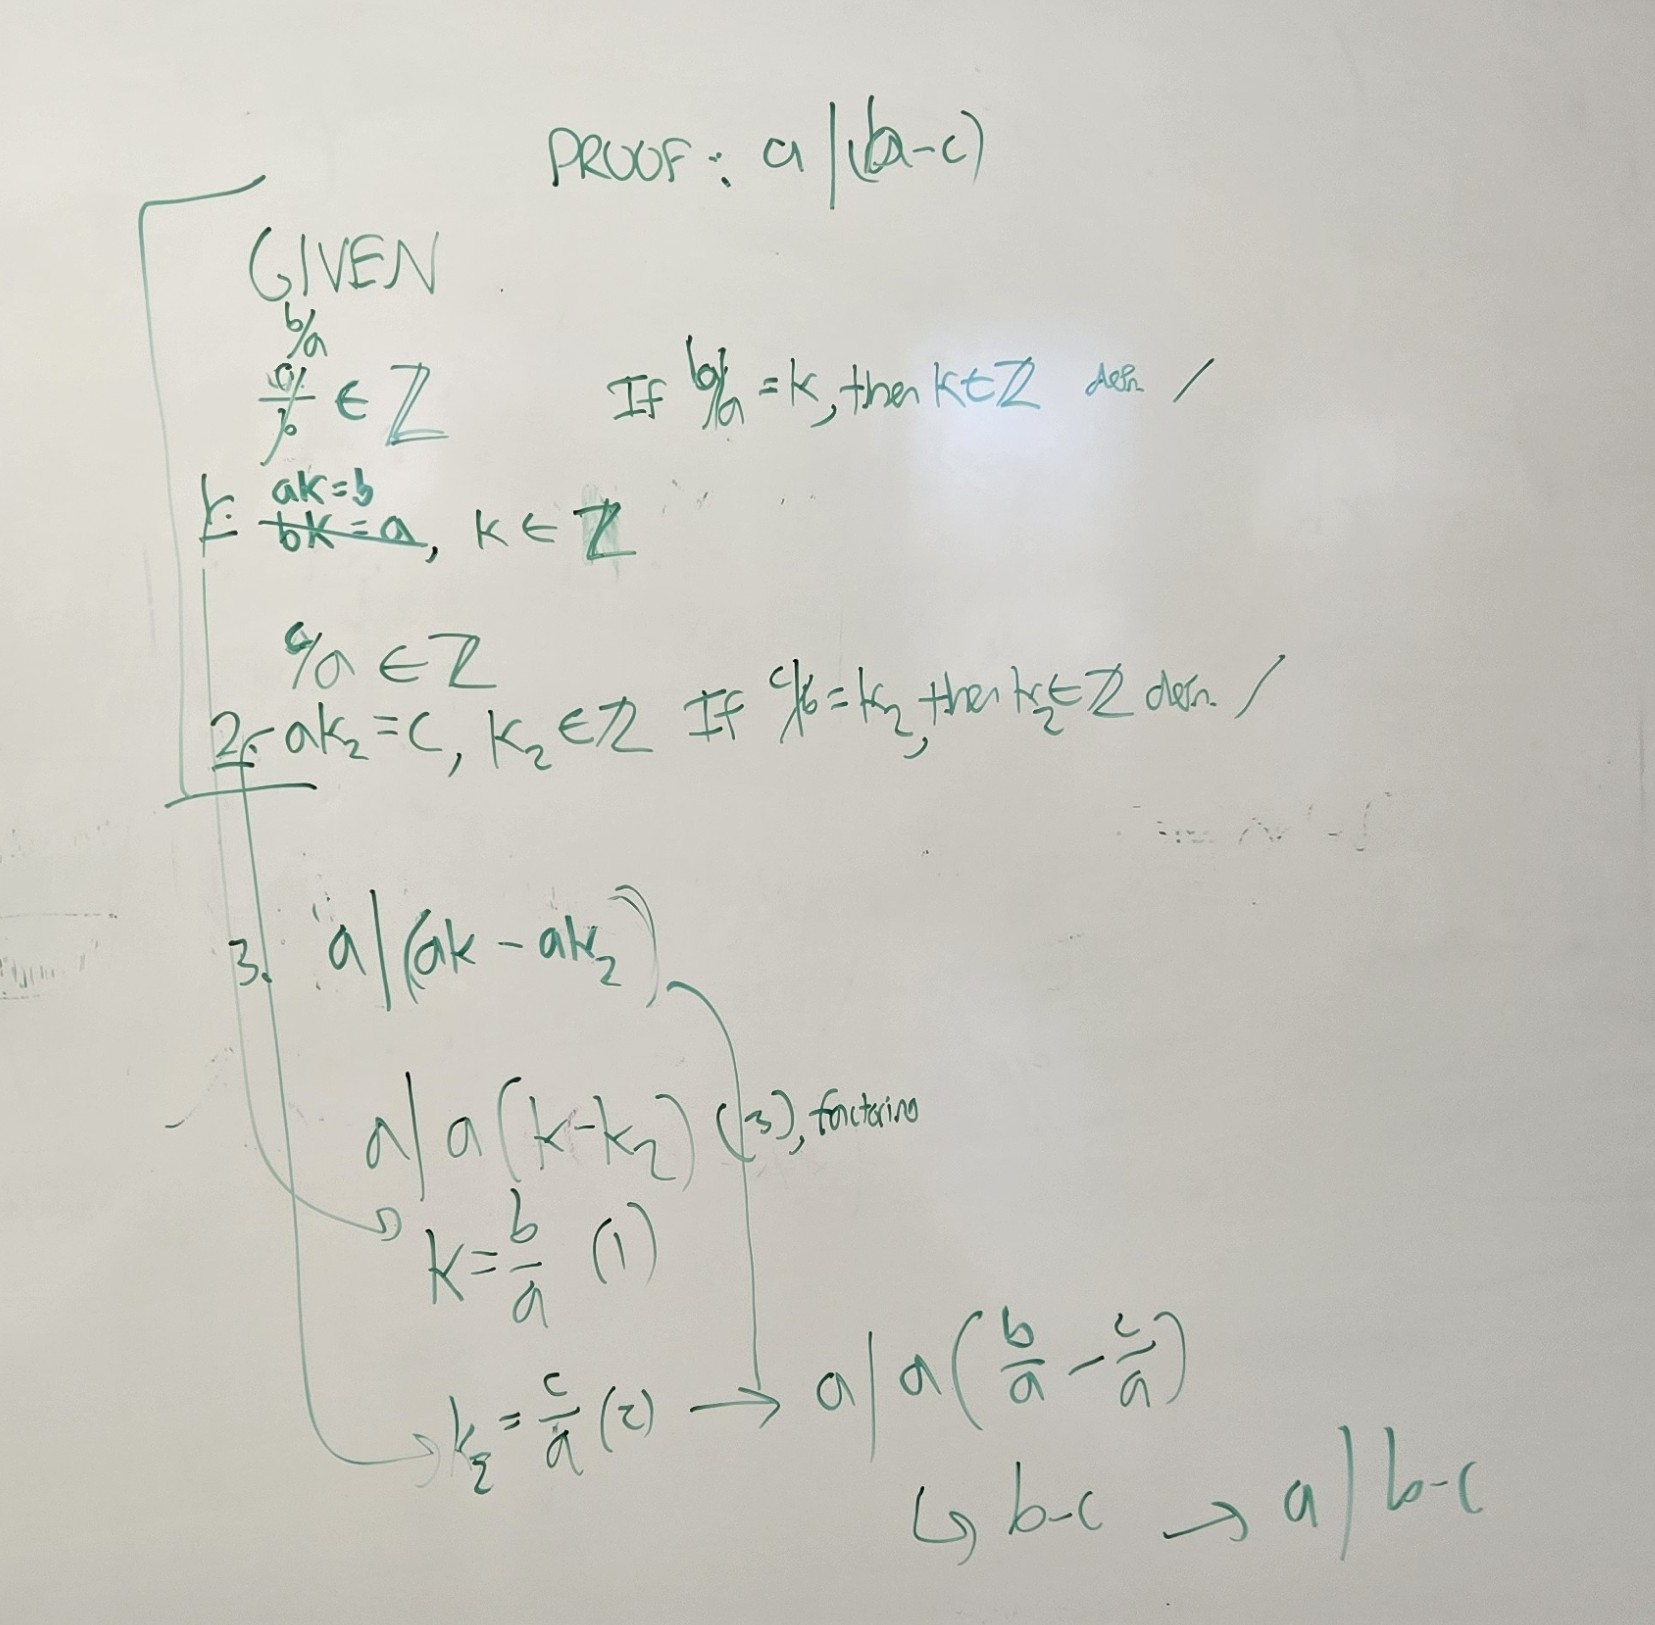 PROOF: a|(b-c)
GIVEN
b/a
a/b ∈ ℤ If b/a = k, then k∈ℤ defn. /
ak=b
1. bk=a, k ∈ ℤ
c/a ∈ ℤ
2. ak₂ = c, k₂ ∈ ℤ If c/b = k₂, then k₂ ∈ ℤ defn. /
3. a|(ak - ak₂)
a|a(k-k₂) (3), factoring
k = b/a (1)
k₂ = c/a (2) → a|a(b/a - c/a)
↳ b-c → a|b-c